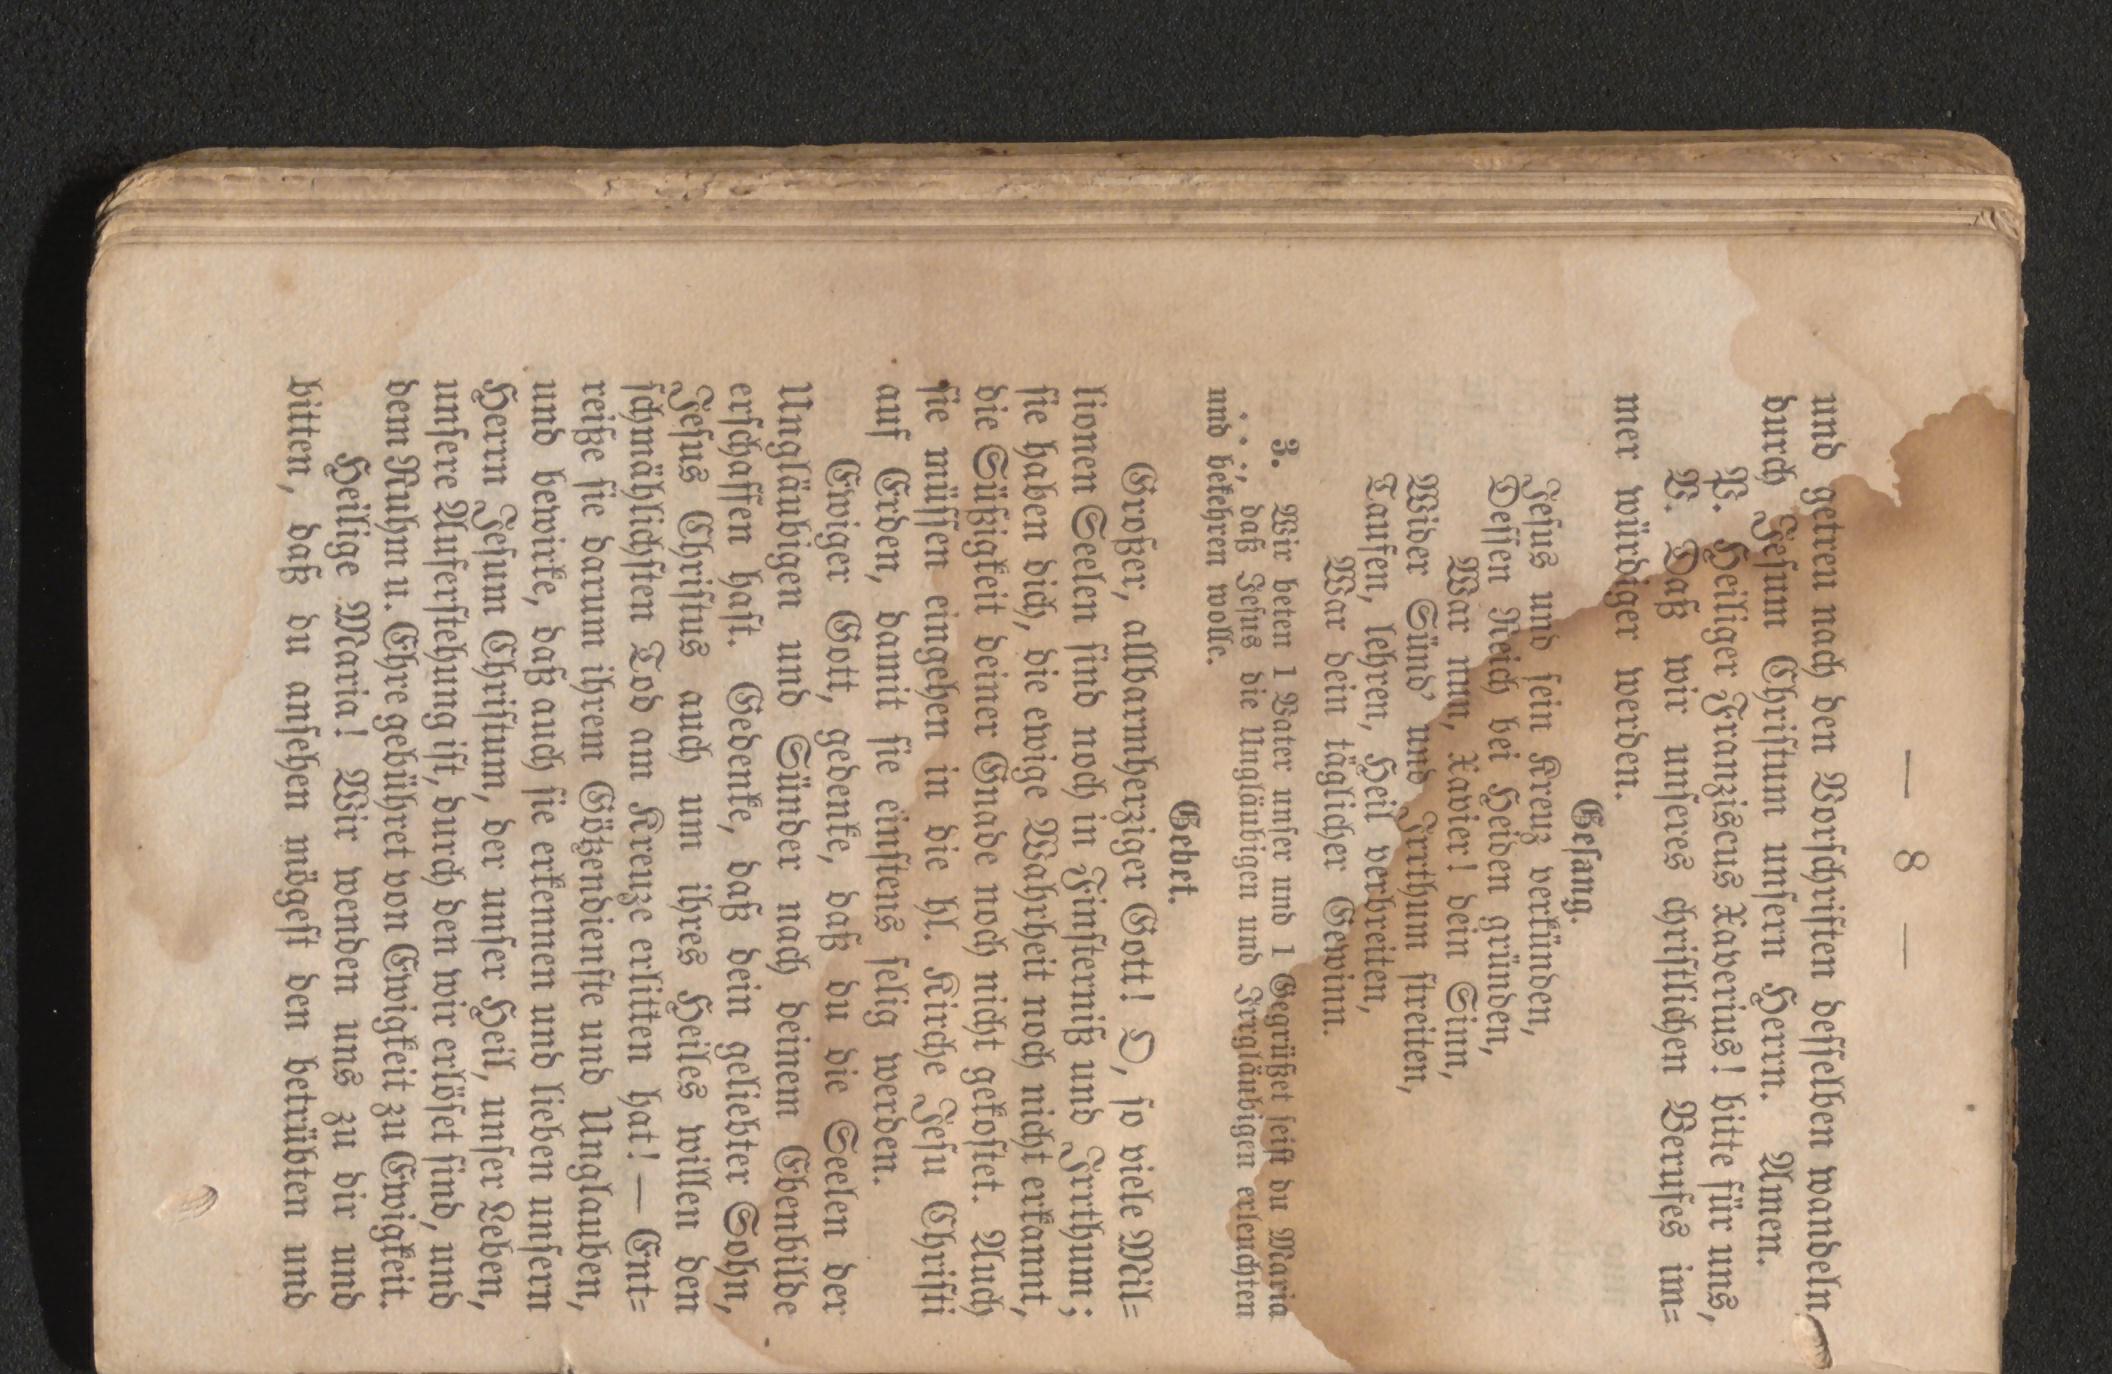 — 8 —
und getreu nach den Vorschriften desselben wandeln,
durch Jesum Christum unsern Herrn. Amen.
P. Heiliger Franziscus Xaverius! bitte für uns,
V. Daß wir unseres christlichen Berufes im=
mer würdiger werden.
Gesang.
Jesus und sein Kreuz verkünden,
Dessen Reich bei Heiden gründen,
War nun, Xavier! dein Sinn,
Wider Sünd' und Irrthum streiten,
Taufen, lehren, Heil verbreiten,
War dein täglicher Gewinn.
3. Wir beten 1 Vater unser und 1 Gegrüßet seist du Maria
. . ., daß Jesus die Ungläubigen und Irrgläubigen erleuchten
und bekehren wolle.
Gebet.
Großer, allbarmherziger Gott! O, so viele Mil=
lionen Seelen sind noch in Finsterniß und Irrthum;
sie haben dich, die ewige Wahrheit noch nicht erkannt,
die Süßigkeit deiner Gnade noch nicht gekostet. Auch
sie müssen eingehen in die hl. Kirche Jesu Christi
auf Erden, damit sie einstens selig werden.
Ewiger Gott, gedenke, daß du die Seelen der
Ungläubigen und Sünder nach deinem Ebenbilde
erschaffen hast. Gedenke, daß dein geliebter Sohn,
Jesus Christus auch um ihres Heiles willen den
schmählichsten Tod am Kreuze erlitten hat! — Ent=
reiße sie darum ihrem Götzendienste und Unglauben,
und bewirke, daß auch sie erkennen und lieben unsern
Herrn Jesum Christum, der unser Heil, unser Leben,
unsere Auferstehung ist, durch den wir erlöset sind, und
dem Ruhm u. Ehre gebühret von Ewigkeit zu Ewigkeit.
Heilige Maria! Wir wenden uns zu dir und
bitten, daß du ansehen mögest den betrübten und